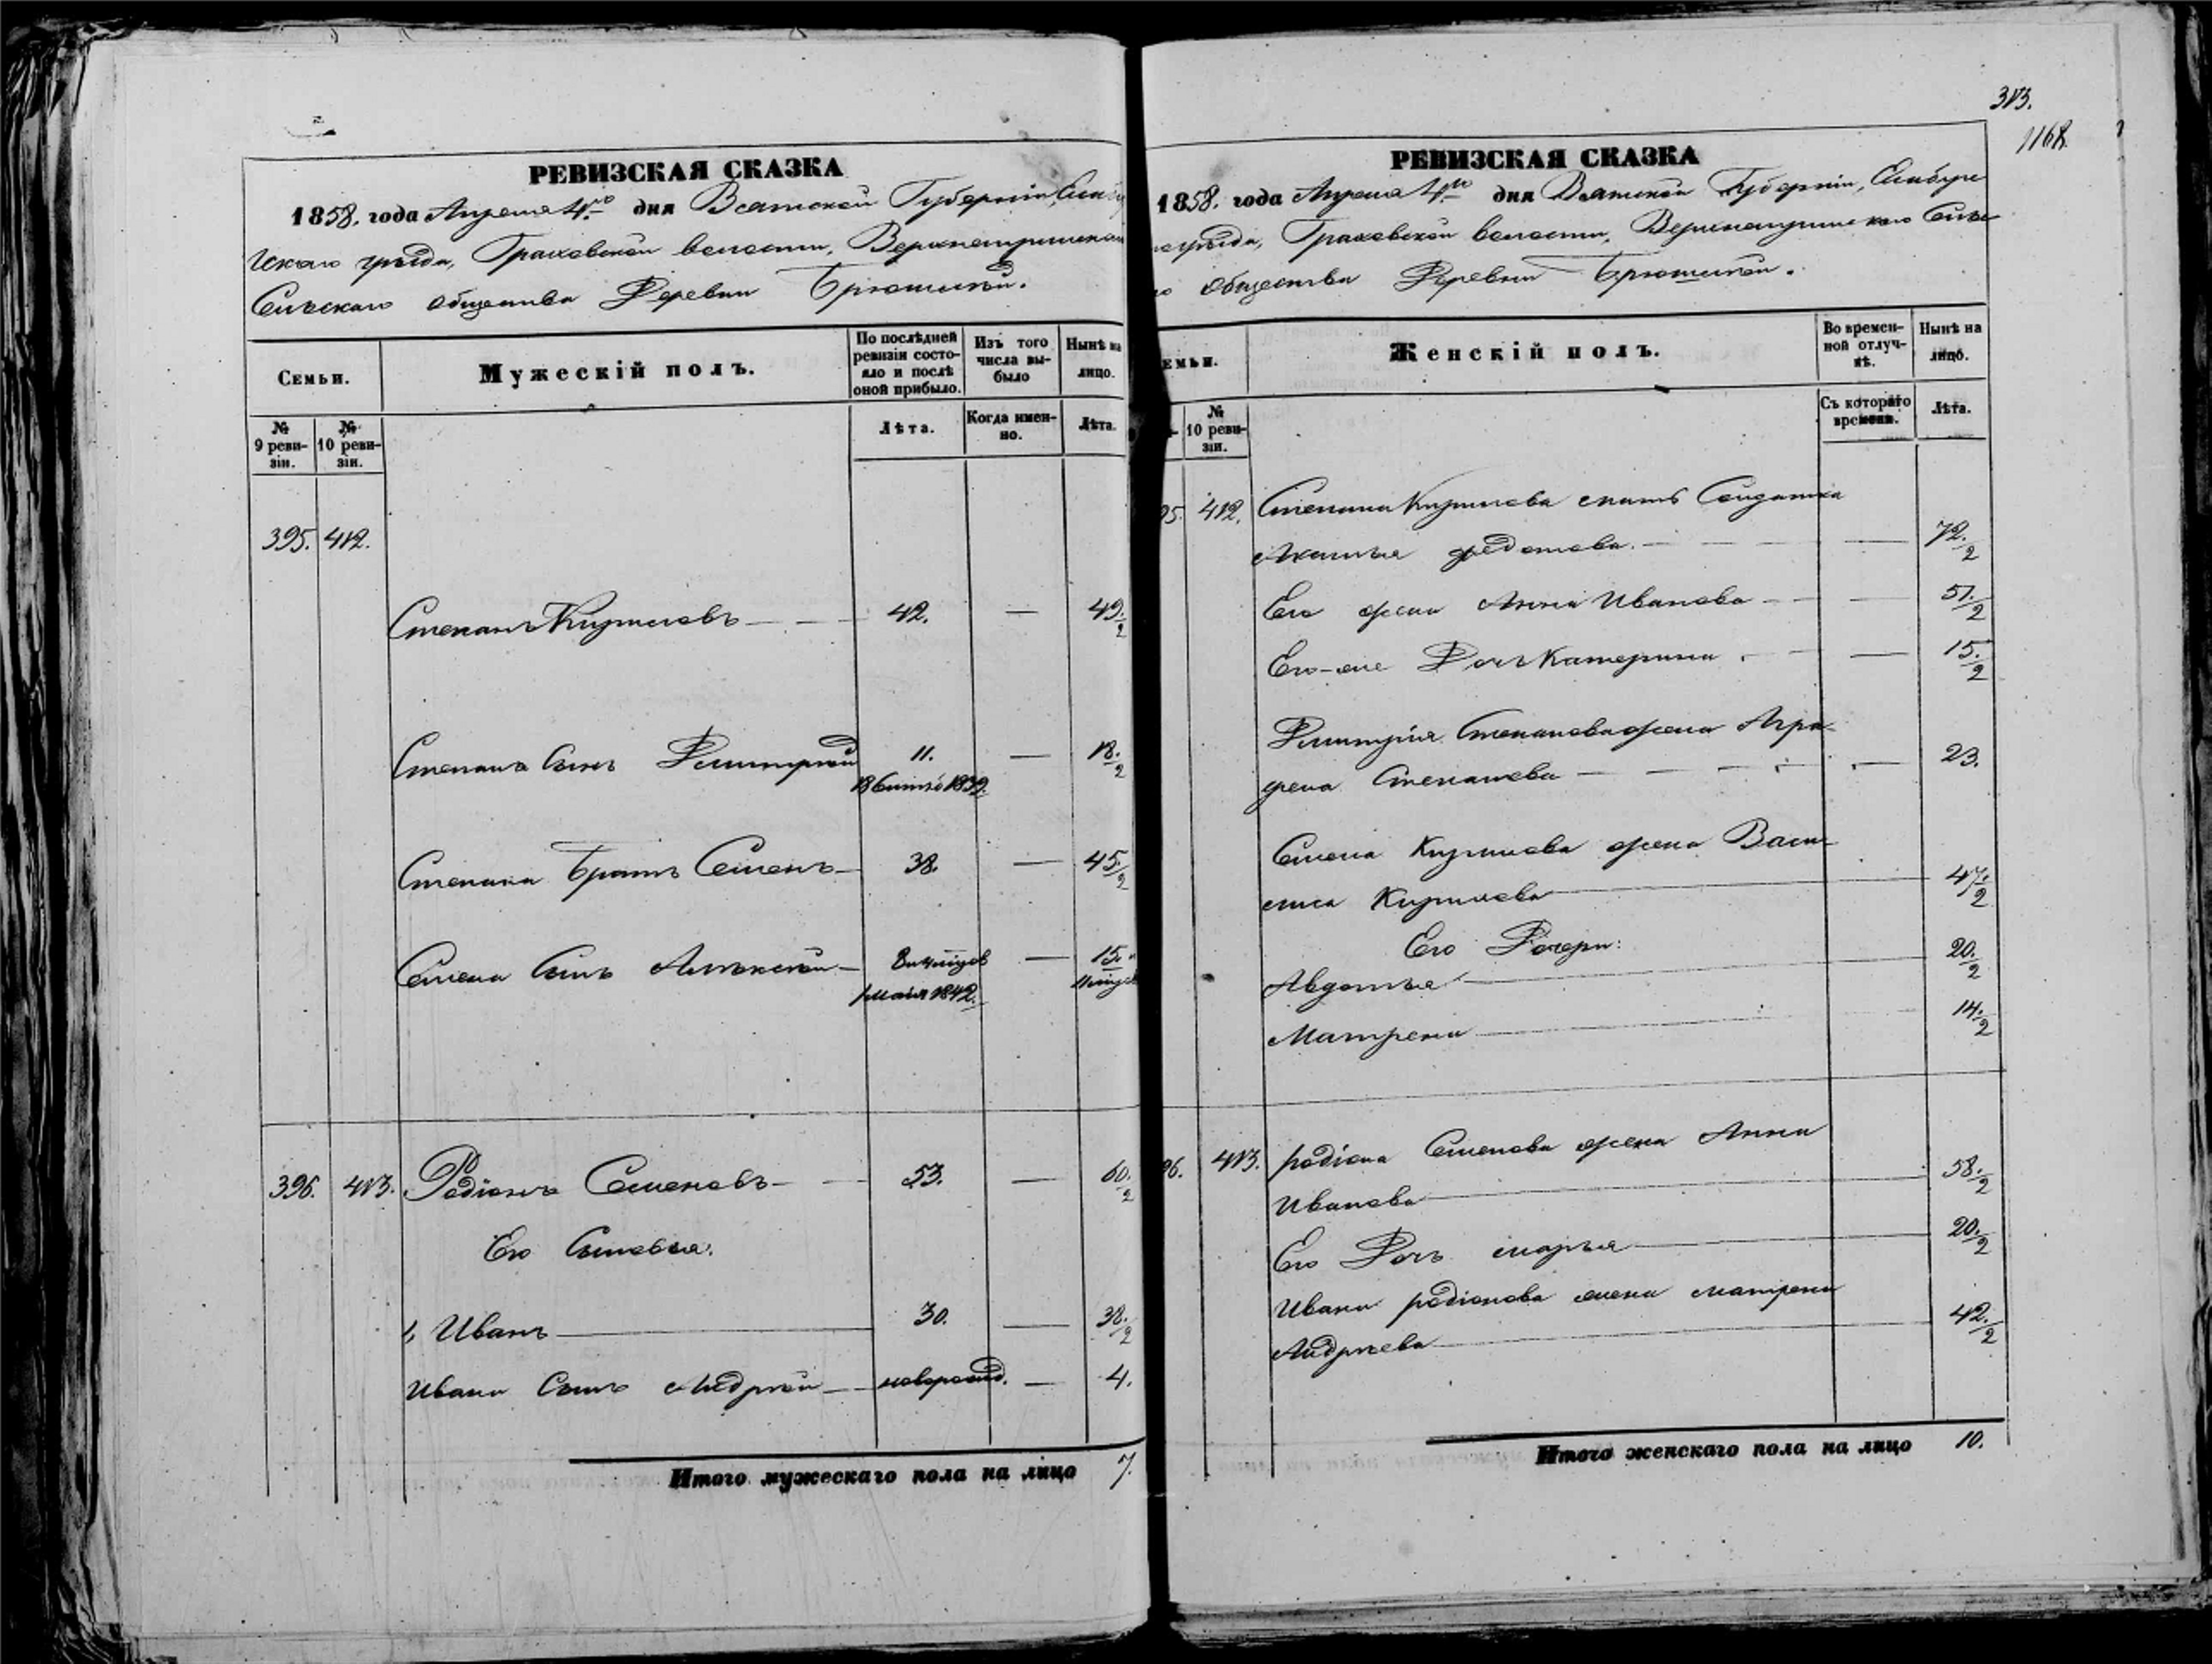 РЕВИЗСКАЯ СКАЗКА
1858. года Апреля 4го дня Вятской Губерніи,
уѣзда, Граховской волости,
Сельскаго общества Деревни Брюшли.
Семьи.
Мужескій полъ.
По послѣдней ревизіи состояло и послѣ оной прибыло.
Изъ того числа выбыло
Нынѣ на лицо.
№ 9 ревизіи.
№ 10 ревизіи.
Лѣта.
Когда именно.
Лѣта.
395. 412.
Степанъ Кириловъ 42. — 49 1/2
Степана Сынъ Дмитрей 11. — 18 1/2
1839.
Степана Братъ Семенъ 38. — 45 1/2
Семена Сынъ Алексѣй — 15.
1 мая 1842.
396. 413. Родіонъ Семеновъ 53. — 60 1/2
Его Сыновья:
1, Иванъ 30. — 38 1/2
Ивана Сынъ Андрей новорожд. — 4.
Итого мужескаго пола на лицо 7.
313.
1168.
РЕВИЗСКАЯ СКАЗКА
1858. года Апреля 4го дня Вятской Губерніи,
уѣзда, Граховской волости,
общества Деревни
емьи.
Женскій полъ.
Во временной отлучкѣ.
Нынѣ на лицо.
№ 10 ревизіи.
Съ котораго времени.
Лѣта.
95. 412. Степана Кирилова мать Солдатка
Федотова. — 72 1/2
Его жена Анна Иванова — 51 1/2
Его-же Дочь Катерина — 15 1/2
Дмитрія Степанова жена Агра-
фена Степанова — 23.
Семена Кирилова жена Васи-
лиса Кирилова 47 1/2
Его Дочери:
Авдотья 20 1/2
Матрена 14 1/2
96. 413. родіона Семенова жена Анна
Иванова 58 1/2
Его Дочь марья 20 1/2
Ивана родіонова жена матрена
Андреева 42 1/2
Итого женскаго пола на лицо 10.